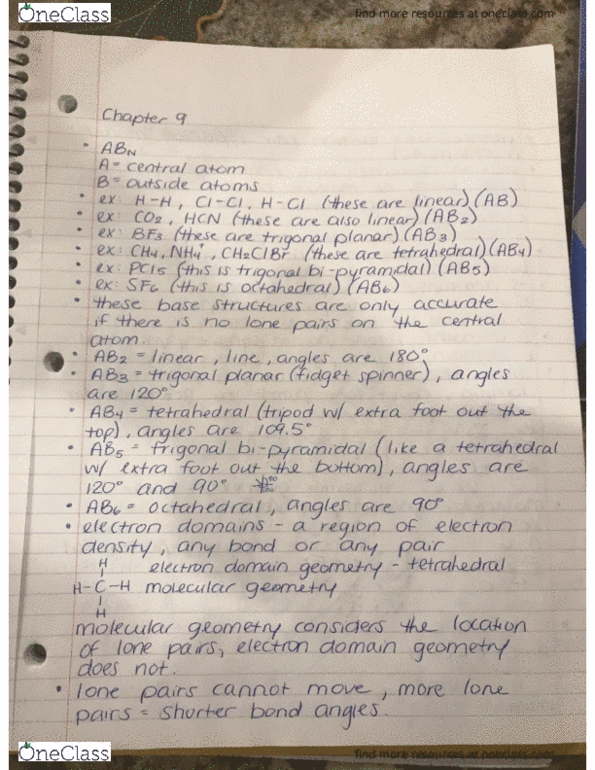 OneClass
find more resources at oneclass.com
Chapter 9
• ABN
A = central atom
B = outside atoms
• ex: H-H, Cl-Cl, H-Cl (these are linear) (AB)
• ex: CO2, HCN (these are also linear) (AB2)
• ex: BF3 (these are trigonal planar) (AB3)
• ex: CH4, NH4+, CH2ClBr (these are tetrahedral) (AB4)
• ex: PCl5 (this is trigonal bi-pyramidal) (AB5)
• ex: SF6 (this is octahedral) (AB6)
• these base structures are only accurate
if there is no lone pairs on the central
atom.
• AB2 = linear, line, angles are 180°
• AB3 = trigonal planar (fidget spinner), angles
are 120°
• AB4 = tetrahedral (tripod w/ extra foot out the
top), angles are 109.5°
• AB5 = trigonal bi-pyramidal (like a tetrahedral
w/ extra foot out the bottom), angles are
120° and 90°
• AB6 = octahedral, angles are 90°
• electron domains - a region of electron
density, any bond or any pair
H electron domain geometry - tetrahedral
H-C-H molecular geometry
H
molecular geometry considers the location
of lone pairs, electron domain geometry
does not.
• lone pairs cannot move, more lone
pairs = shorter bond angles.
OneClass
find more resources at oneclass.com